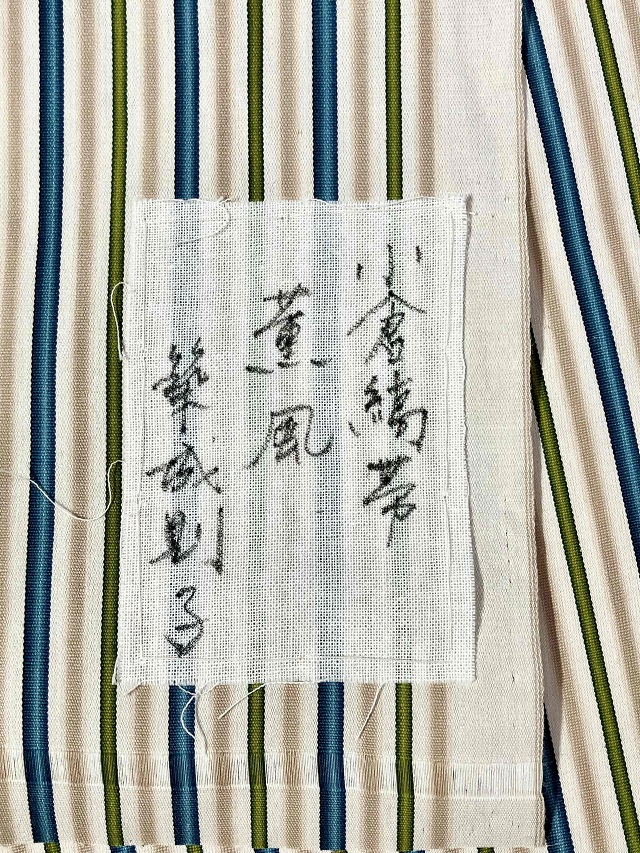 小倉縞帯
薫風
築城則子